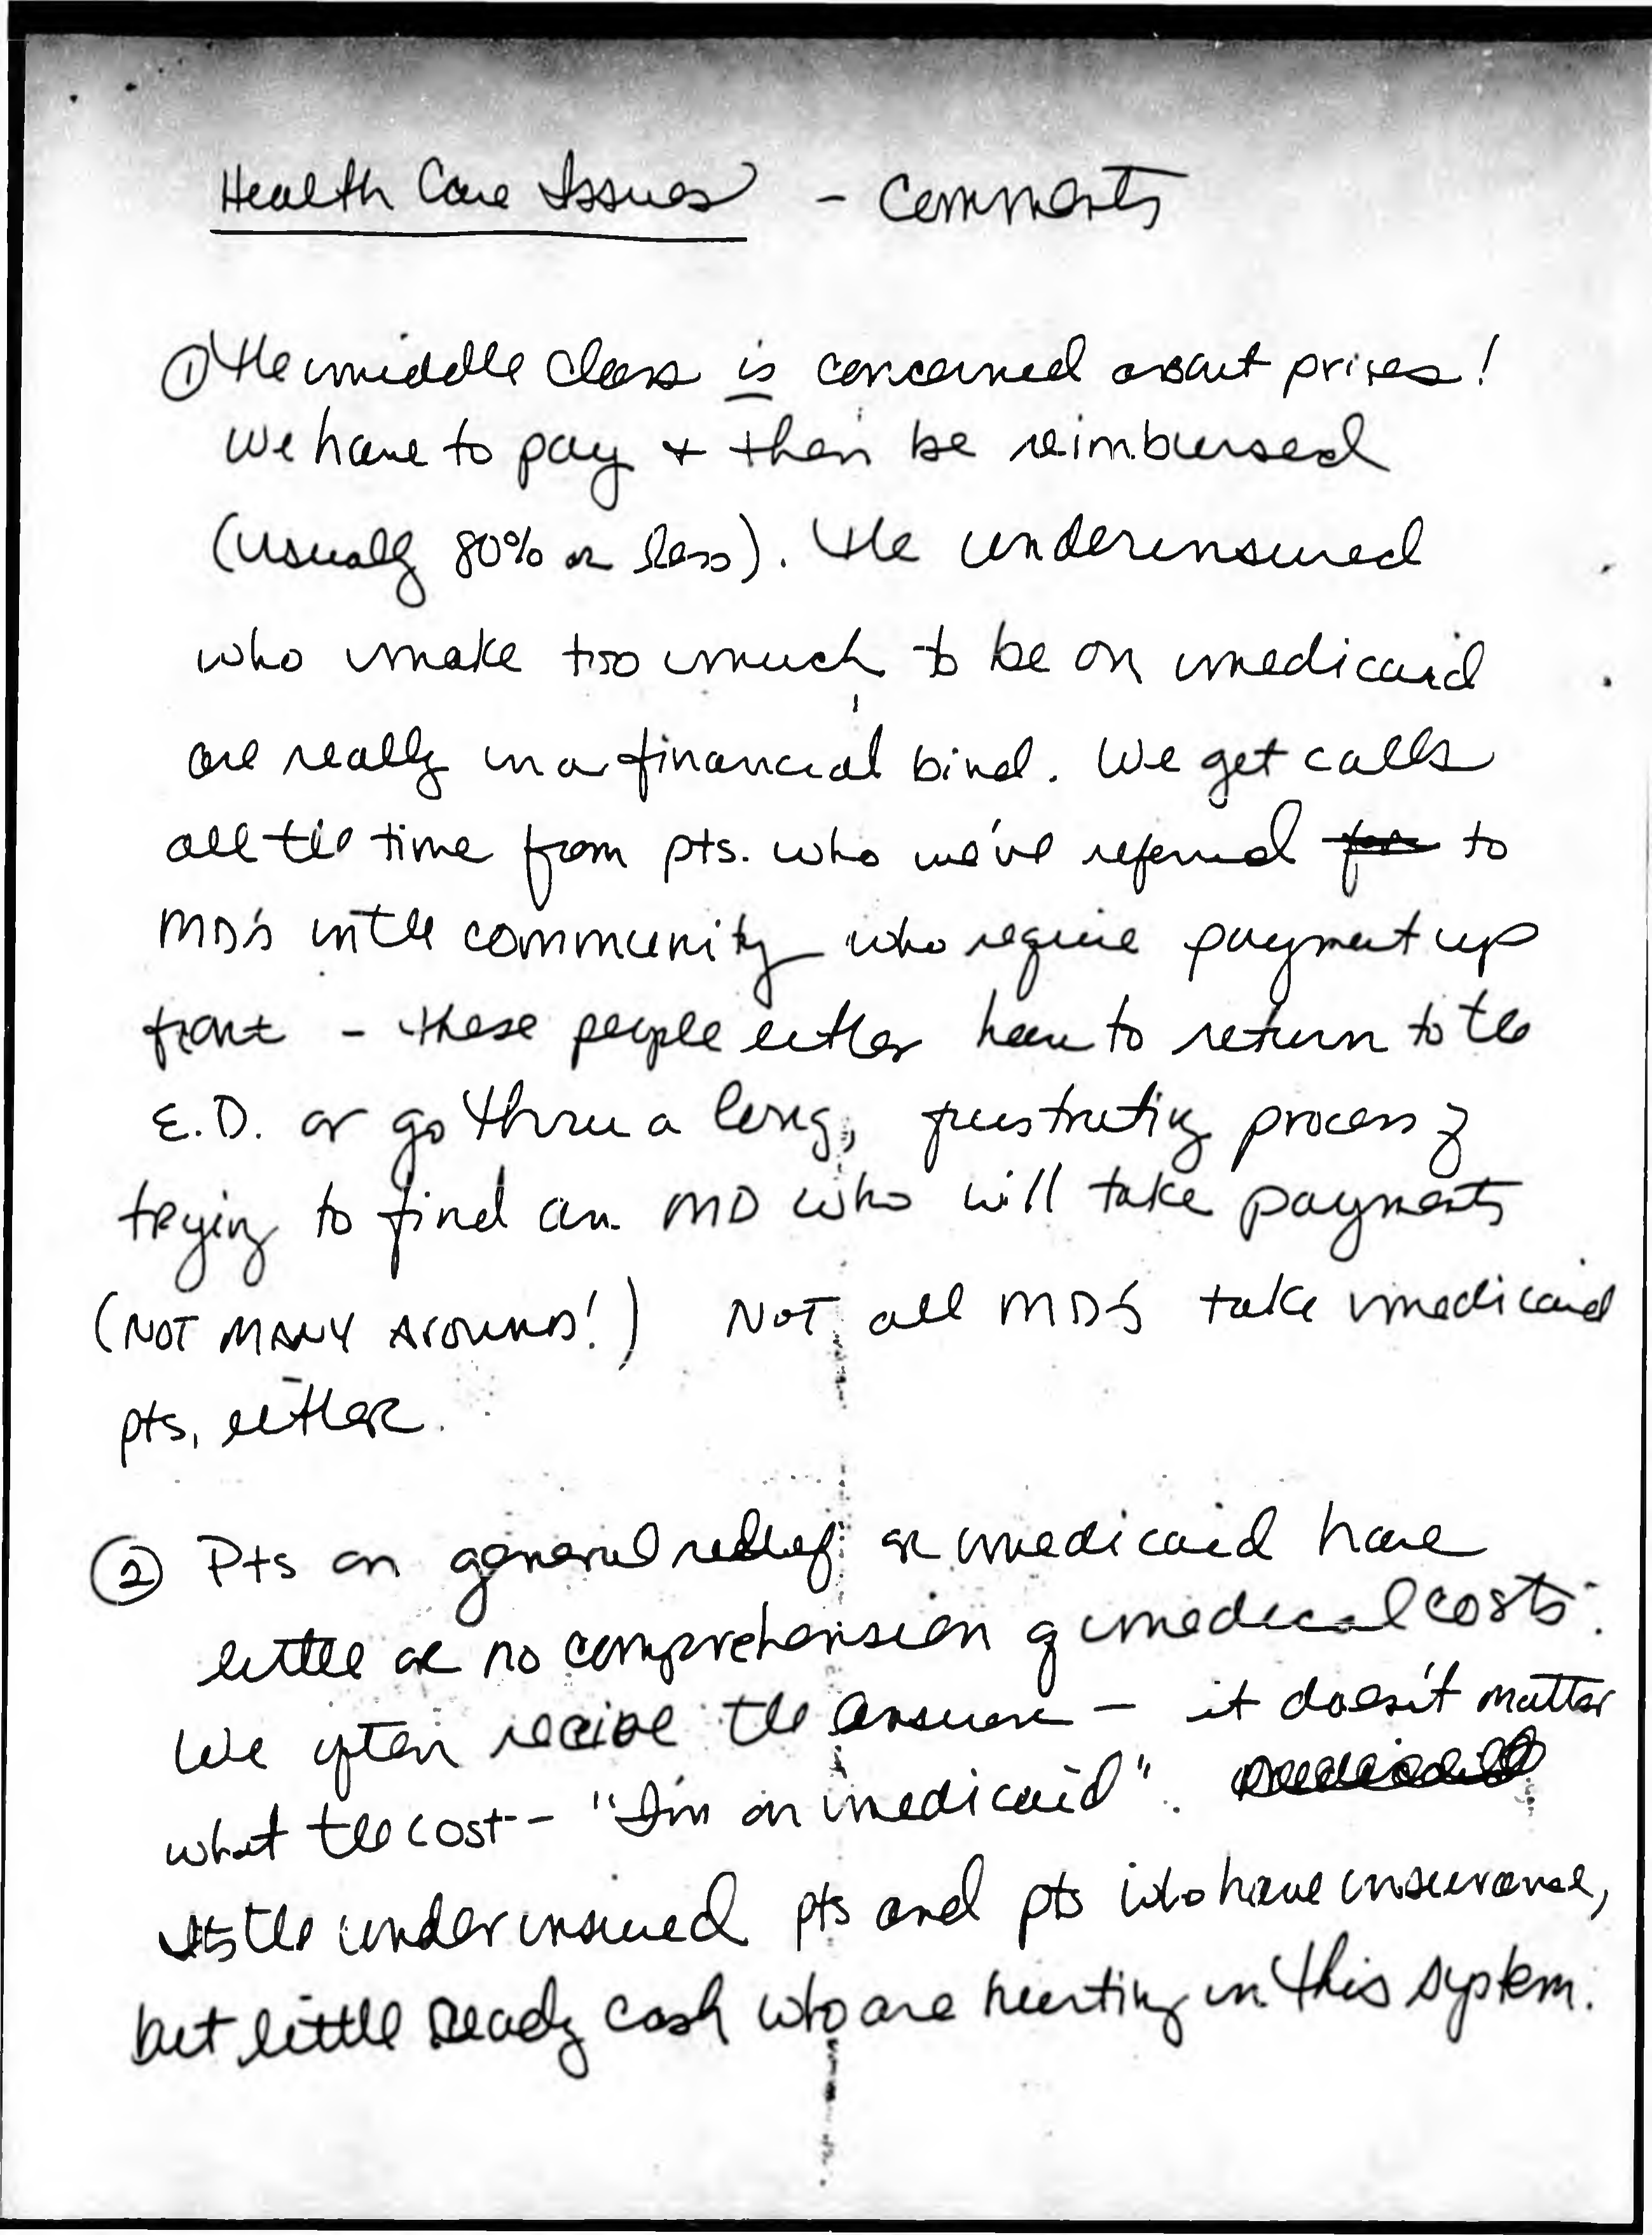 Health Care Issues - Comments
① The middle class is concerned about prices!
We have to pay + then be reimbursed
(usually 80% or less). The underinsured
who make too much to be on medicaid
are really in a financial bind. We get calls
all the time from pts. who we've referred for to
MD's in the community who require payment up
front - these people either have to return to the
E.D. or go thru a long, frustrating process of
trying to find an MD who will take payments
(NOT MANY AROUND!) NOT all MD'S take medicaid
pts, either.
② Pts on general relief or medicaid have
little or no comprehension of medical costs.
We often receive the answer - it doesn't matter
what the cost - "I'm on medicaid".
It's the underinsured pts and pts who have insurance,
but little ready cash who are hurting in this system.